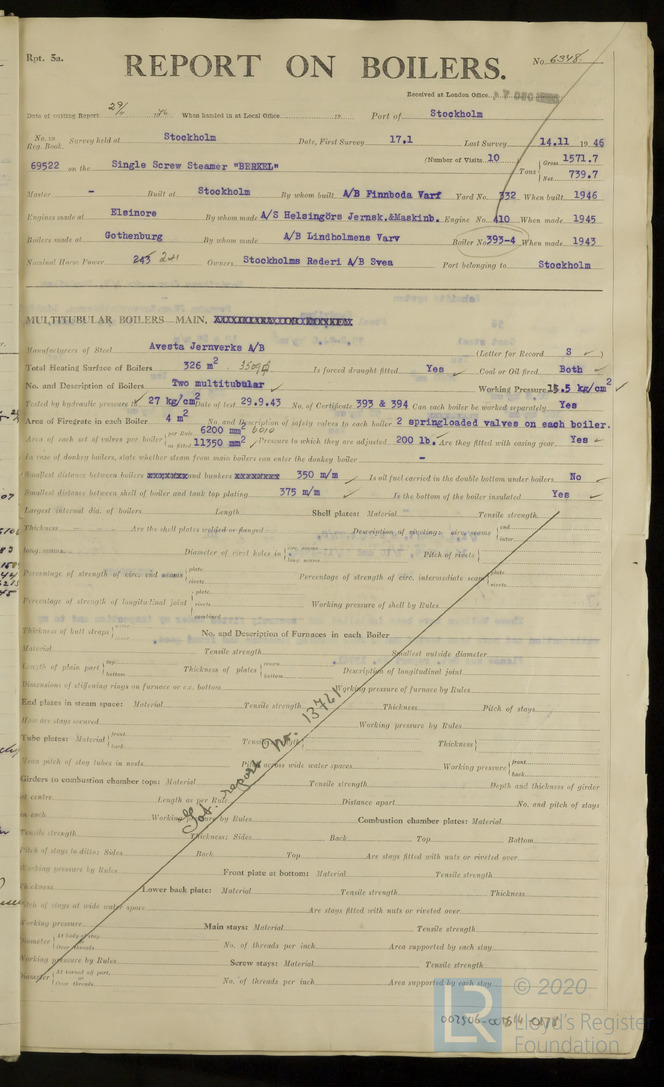 Rpt. 5a.
No. 6348.
REPORT ON BOILERS.
Received at London Office
Date of writing Report 29/ 19 When handed in at Local Office 19 Port of Stockholm
No. in Reg. Book. Survey held at Stockholm Date, First Survey 17.1 Last Survey 14.11 1946
69522 on the Single Screw Steamer "BERKEL" (Number of Visits 10 ) Tons Gross 1571.7 Net 739.7
Master - Built at Stockholm By whom built A/B Finnboda Varf Yard No. 332 When built 1946
Engines made at Elsinore By whom made A/S Helsingörs Jernsk.&Maskinb. Engine No. 410 When made 1945
Boilers made at Gothenburg By whom made A/B Lindholmens Varv Boiler No. 393-4 When made 1943
Nominal Horse Power 243 241 Owners Stockholms Rederi A/B Svea Port belonging to Stockholm
MULTITUBULAR BOILERS MAIN,
Manufacturers of Steel Avesta Jernverks A/B (Letter for Record S )
Total Heating Surface of Boilers 326 m2 Is forced draught fitted Yes Coal or Oil fired Both
No. and Description of Boilers Two multitubular Working Pressure 15.5 kg/cm2
Tested by hydraulic pressure to 27 kg/cm2 Date of test 29.9.43 No. of Certificate 393 & 394 Can each boiler be worked separately Yes
Area of Firegrate in each Boiler 4 m2 No. and Description of safety valves to each boiler 2 springloaded valves on each boiler.
Area of each set of valves per boiler per Rule 6200 mm2 as fitted 11350 mm2 Pressure to which they are adjusted 200 lb. Are they fitted with easing gear Yes
In case of donkey boilers, state whether steam from main boilers can enter the donkey boiler -
Smallest distance between boilers and bunkers 350 m/m Is oil fuel carried in the double bottom under boilers No
Smallest distance between shell of boiler and tank top plating 375 m/m Is the bottom of the boiler insulated Yes
Largest internal dia. of boilers Length Shell plates: Material Tensile strength
Thickness Are the shell plates welded or flanged Description of riveting: circ. seams end inter.
long. seams Diameter of rivet holes in circ. seams long. seams Pitch of rivets
Percentage of strength of circ. end seams plate rivets Percentage of strength of circ. intermediate seam plate rivets
Percentage of strength of longitudinal joint plate rivets combined Working pressure of shell by Rules
Thickness of butt straps No. and Description of Furnaces in each Boiler
Material Tensile strength Smallest outside diameter
Length of plain part top bottom Thickness of plates crown bottom Description of longitudinal joint
Dimensions of stiffening rings on furnace or c.c. bottom Working pressure of furnace by Rules
End plates in steam space: Material Tensile strength Thickness Pitch of stays
How are stays secured Working pressure by Rules
Tube plates: Material front back Tensile strength Thickness
Mean pitch of stay tubes in nests Pitch across wide water spaces Working pressure front back
Girders to combustion chamber tops: Material Tensile strength Depth and thickness of girder
at centre Length as per Rule Distance apart No. and pitch of stays
in each Working pressure by Rules Combustion chamber plates: Material
Tensile strength Thickness: Sides Back Top Bottom
Pitch of stays to ditto: Sides Back Top Are stays fitted with nuts or riveted over
Working pressure by Rules Front plate at bottom: Material Tensile strength
Thickness Lower back plate: Material Tensile strength Thickness
Pitch of stays at wide water space Are stays fitted with nuts or riveted over
Working pressure Main stays: Material Tensile strength
Diameter At body of stay Over threads No. of threads per inch Area supported by each stay
Working pressure by Rules Screw stays: Material Tensile strength
Diameter At turned off part, or Over threads No. of threads per inch Area supported by each stay
Got. report No. 13721
LR © 2020
Lloyd's Register
Foundation